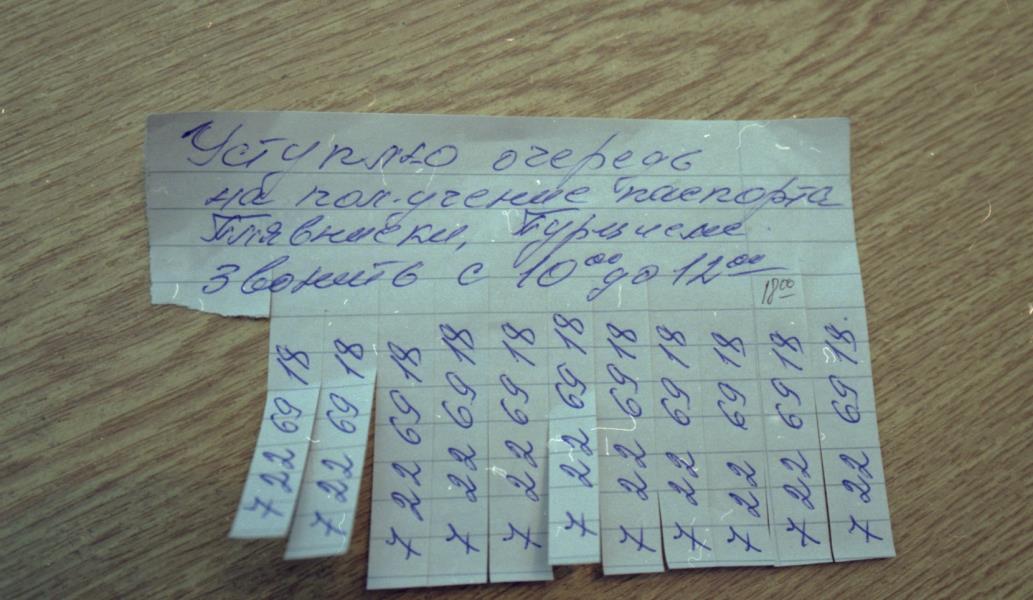 Уступлю очередь
на получение паспорта
Плявниеки, Пурциемс.
Звонить с 10⁰⁰ до 12⁰⁰
18⁰⁰
7 22 69 18
7 22 69 18
7 22 69 18
7 22 69 18
7 22 69 18
7 22 69 18
7 22 69 18
7 22 69 18
7 22 69 18
7 22 69 18
7 22 69 18